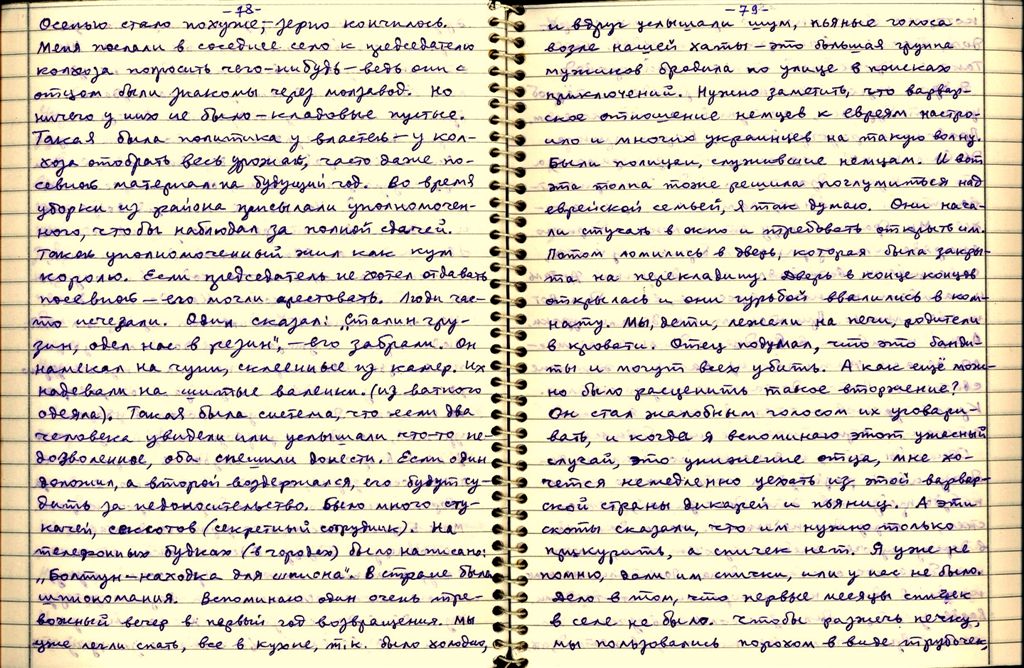 -78-
Осенью стало похуже,- зерно кончилось.
Меня послали в соседнее село к председателю
колхоза попросить чего-нибудь - ведь они с
отцом были знакомы через молзавод. Но
ничего у них не было - кладовые пустые.
Такая была политика у властей - у кол-
хоза отобрать весь урожай, часто даже по-
севной материал на будущий год. Во время
уборки из района присылали уполномочен-
ного, чтобы наблюдал за полной сдачей.
Такой уполномоченный жил как кум
королю. Если председатель не хотел отдавать
посевной - его могли арестовать. Люди час-
то исчезали. Один сказал: „Сталин гру-
зин, одел нас в резин", - его забрали. Он
намекал на чуни, склеенные из камер. Их
надевали на шитые валенки (из ватного
одеяла). Такая была система, что если два
человека увидели или услышали что-то не-
дозволенное, оба спешили донести. Если один
доложил, а второй воздержался, его будут су-
дить за недоносительство. Было много сту-
качей, сексотов (секретный сотрудник). На
телефонных будках (в городах) было написано:
„Болтун - находка для шпиона". В стране была
шпиономания. Вспоминаю один очень тре-
вожный вечер в первый год возвращения. Мы
уже легли спать, все в кухне, т.к. было холодно,
-79-
и вдруг услышали шум, пьяные голоса
возле нашей хаты - это большая группа
мужиков бродила по улице в поисках
приключений. Нужно заметить, что варвар-
ское отношение немцев к евреям настро-
ило и многих украинцев на такую волну.
Были полицаи, служившие немцам. И вот
эта толпа тоже решила поглумиться над
еврейской семьей, я так думаю. Они нача-
ли стучать в окно и требовать открыть им.
Потом ломились в дверь, которая была закры-
та на перекладину. Дверь в конце концов
открылась и они гурьбой ввалились в ком-
нату. Мы, дети, лежали на печи, родители
в кровати. Отец подумал, что это банди-
ты и могут всех убить. А как ещё мож-
но было расценить такое вторжение?
Он стал жалобным голосом их уговари-
вать, и когда я вспоминаю этот ужасный
случай, это унижение отца, мне хо-
чется немедленно уехать из этой варвар-
ской страны дикарей и пьяниц. А эти
скоты сказали, что им нужно только
прикурить, а спичек нет. Я уже не
помню, дали им спички, или у нас не было.
Дело в том, что первые месяцы спичек
в селе не было. Чтобы разжечь печку,
мы пользовались порохом в виде трубочек,